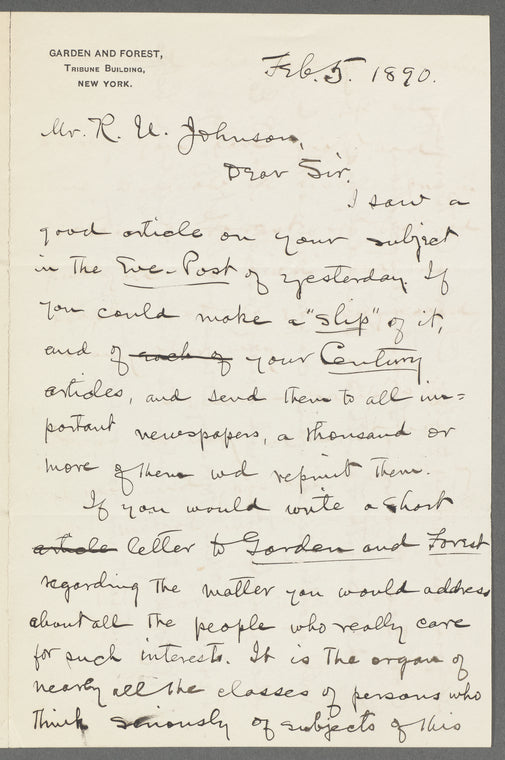 GARDEN AND FOREST,
TRIBUNE BUILDING,
NEW YORK.
Feb. 5. 1890.
Mr. R. U. Johnson,
Dear Sir,
I saw a
good article on your subject
in the Eve. Post of yesterday. If
you could make a "slip" of it,
and of each of your Century
articles, and send them to all im=
portant newspapers, a thousand or
more of them wd reprint them.
If you would write a short
article letter to Garden and Forest
regarding the matter you would address
about all the people who really care
for such interests. It is the organ of
nearly all the classes of persons who
think seriously of subjects of this